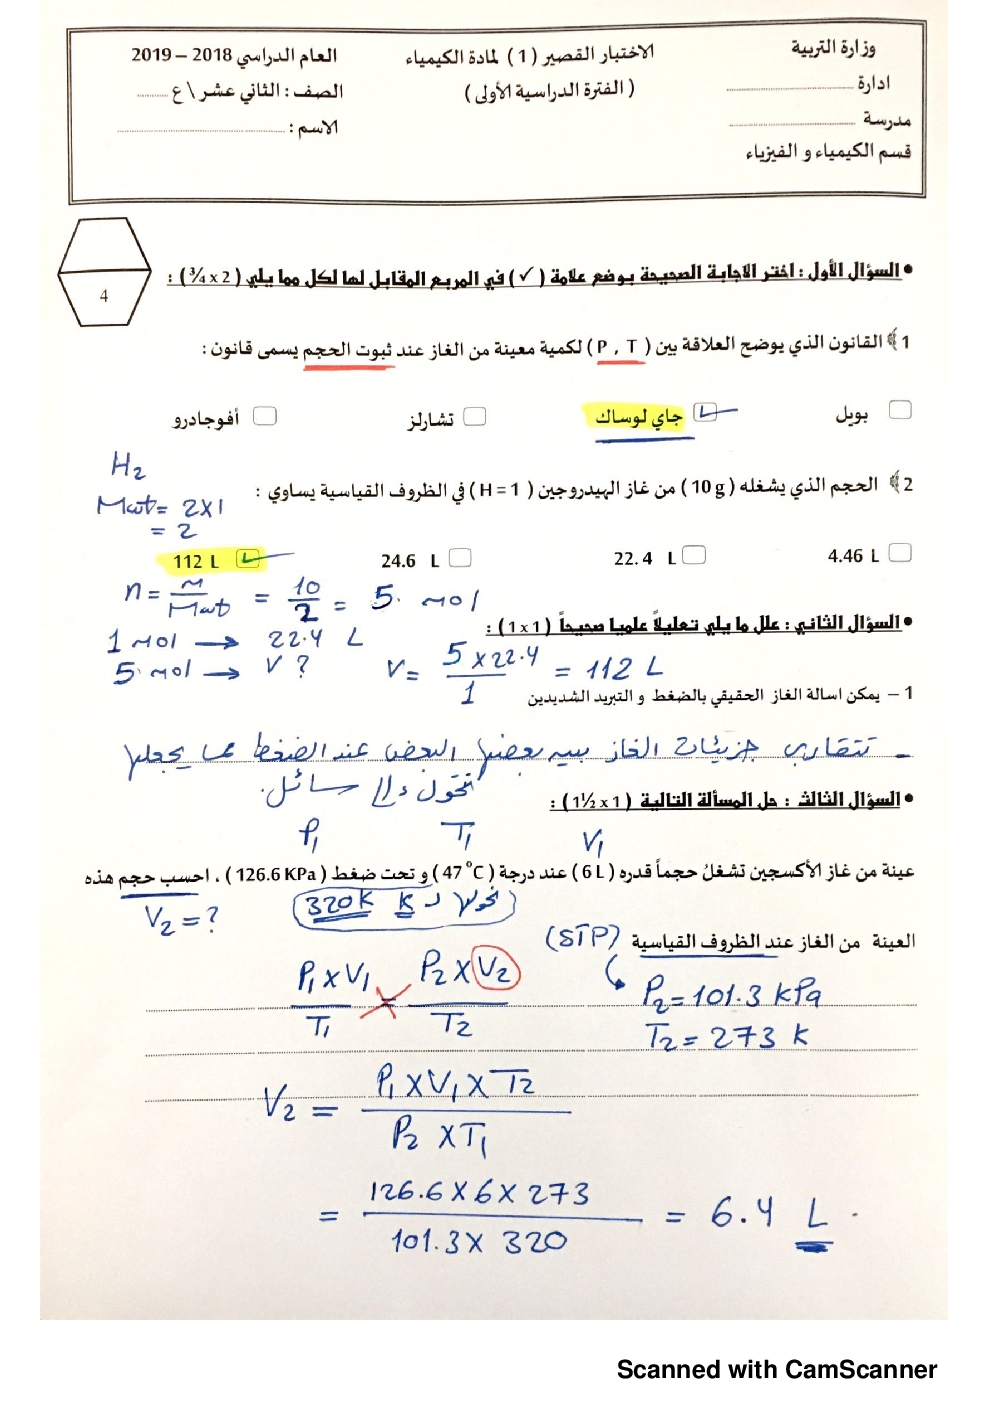 وزارة التربية
ادارة ....................
مدرسة ....................
قسم الكيمياء و الفيزياء
الاختبار القصير ( 1 ) لمادة الكيمياء
( الفترة الدراسية الأولى )
العام الدراسي 2018 – 2019
الصف : الثاني عشر \ ع ........
الاسم : ....................
4
• السؤال الأول : اختر الاجابة الصحيحة بوضع علامة ( ✓ ) في المربع المقابل لها لكل مما يلي ( 2 x ¾ ) :
1 ) القانون الذي يوضح العلاقة بين ( P , T ) لكمية معينة من الغاز عند ثبوت الحجم يسمى قانون :
بويل جاي لوساك تشارلز أفوجادرو
H2
Mwt = 2X1
= 2
2 ) الحجم الذي يشغله ( 10 g ) من غاز الهيدروجين ( H = 1 ) في الظروف القياسية يساوي :
4.46 L 22.4 L 24.6 L 112 L
n = m/Mwt = 10/2 = 5 mol
• السؤال الثاني : علل ما يلي تعليلاً علمياً صحيحاً ( 1 x 1 ) :
1 mol → 22.4 L
5 mol → V ? V = 5 x 22.4/1 = 112 L
1 – يمكن اسالة الغاز الحقيقي بالضغط و التبريد الشديدين
- تتقارب جزيئات الغاز من بعضها البعض عند الضغط مما يجعلها
تتحول إلى سائل.
• السؤال الثالث : حل المسألة التالية ( 1 x 1½ ) :
V1 T1 P1
عينة من غاز الأكسجين تشغل حجماً قدره ( 6 L ) عند درجة ( 47 °C ) و تحت ضغط ( 126.6 KPa ) ، احسب حجم هذه
V2 = ?
نحولها لـ K 320K
العينة من الغاز عند الظروف القياسية (STP)
P1 x V1/T1 = P2 x V2/T2
P2 = 101.3 kPa
T2 = 273 K
V2 = P1 x V1 x T2/P2 x T1
= 126.6 x 6 x 273/101.3 x 320 = 6.4 L
Scanned with CamScanner